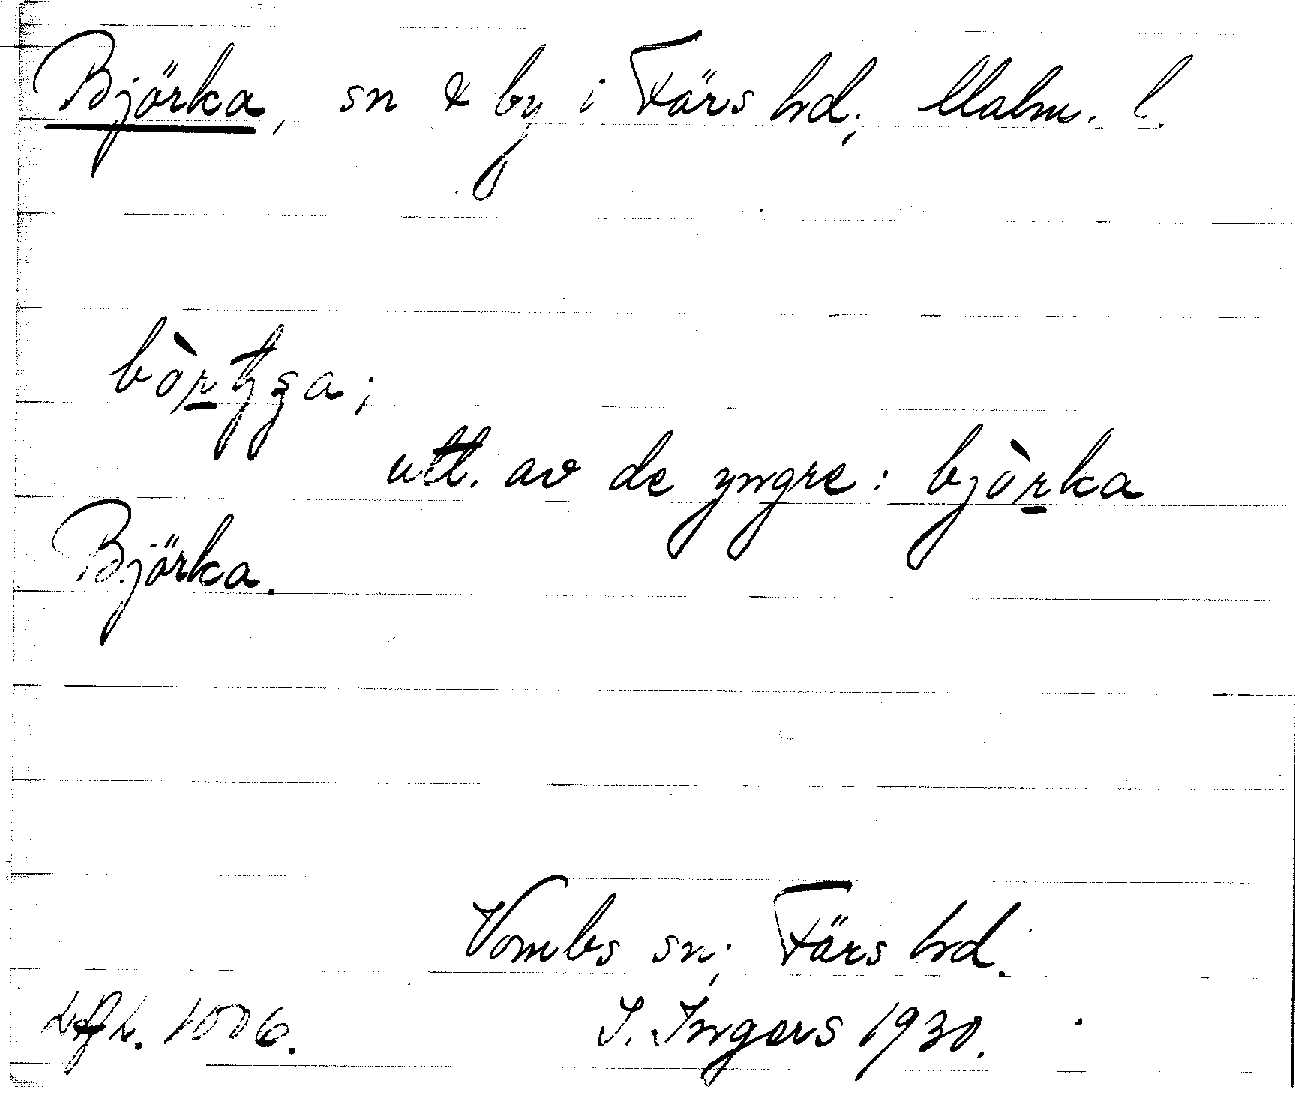 Björka, sn & by i Färs hd, Malm. l.
utt. av de yngre: bjò̈rka
Björka.
Vombs sn, Färs hd.
1006.
I. Ingers 1930.